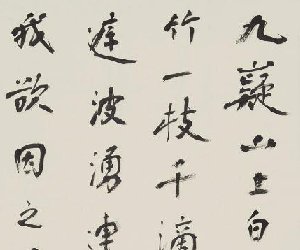 九嶷山上白
竹一枝千滴
庭波湧連
我欲因之